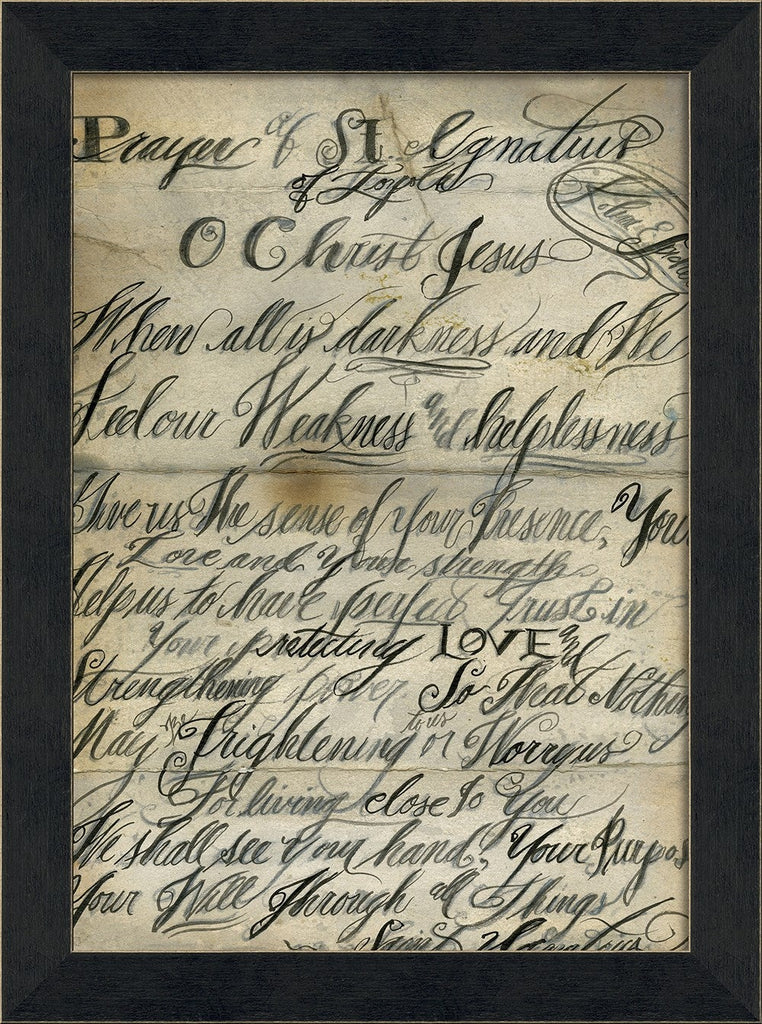 Prayer of St. Ignatius
of Loyola
O Christ Jesus
When all is darkness and We
Feel our Weakness and helplessness
Give us The sense of Your Presence, Your
Love and Your strength
Help us to have perfect Trust in
Your protecting LOVE and
Strengthening power So That Nothin
May be Frightening to us or Worry us
For living close To You
We shall see Your hand, Your Purpos
Your Will Through all Things
Saint Ignatius